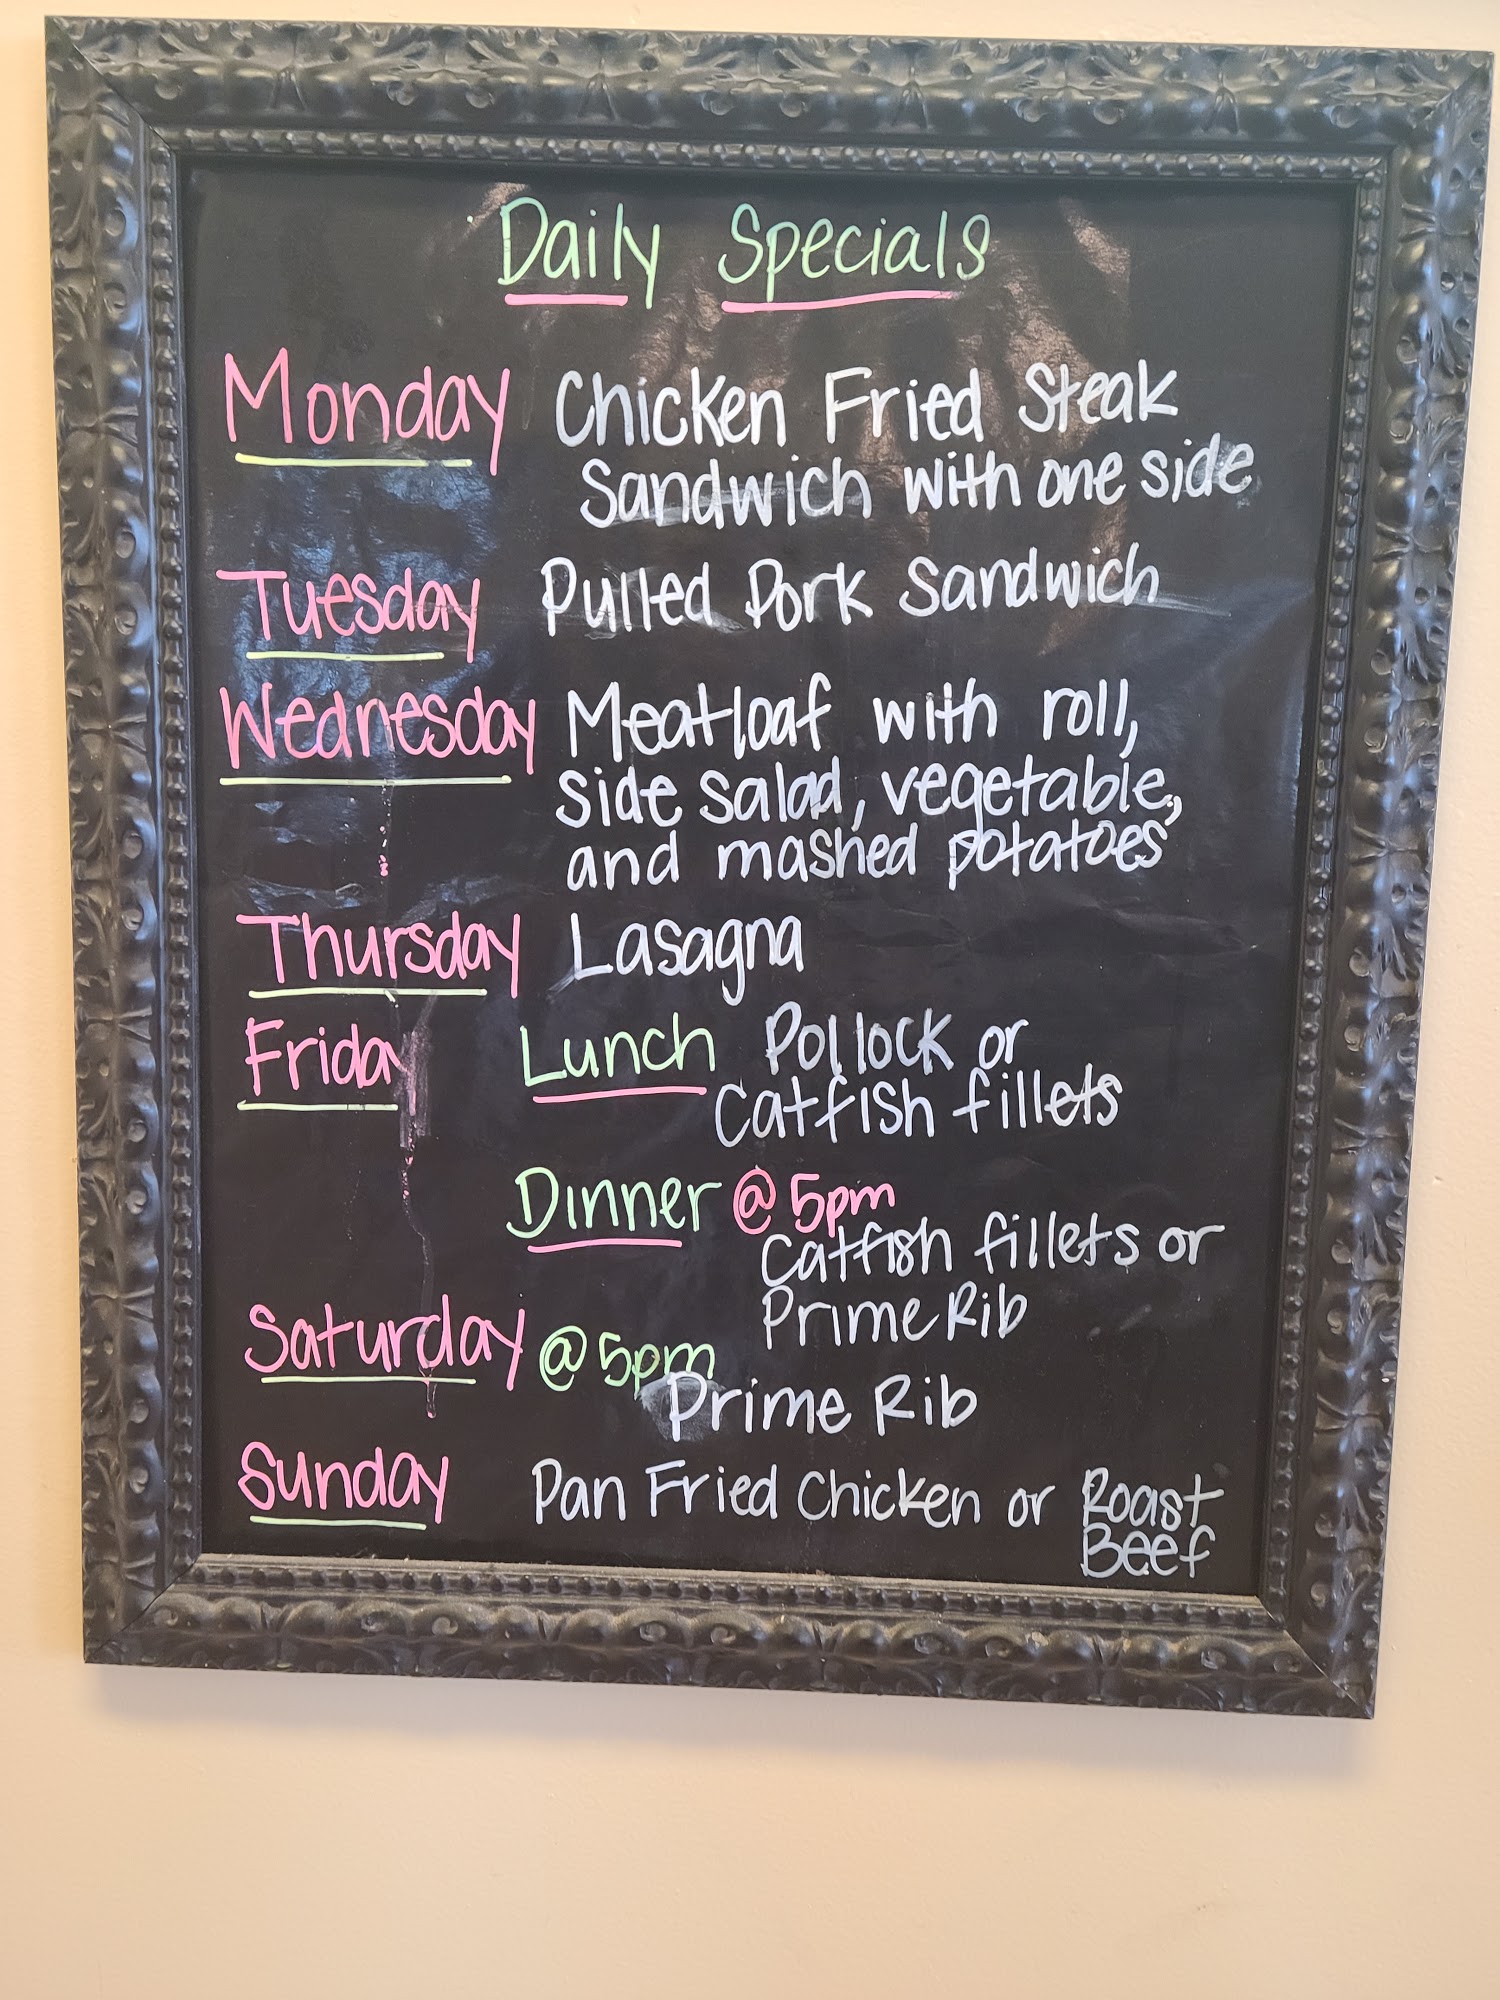 Daily Specials
Monday Chicken Fried Steak
Sandwich with one side
Tuesday Pulled Pork Sandwich
Wednesday Meatloaf with roll,
side salad, vegetable,
and mashed potatoes
Thursday Lasagna
Friday Lunch Pollock or
Catfish fillets
Dinner @ 5pm
Catfish fillets or
Prime Rib
Saturday @ 5pm
Prime Rib
Sunday Pan Fried Chicken or Roast
Beef